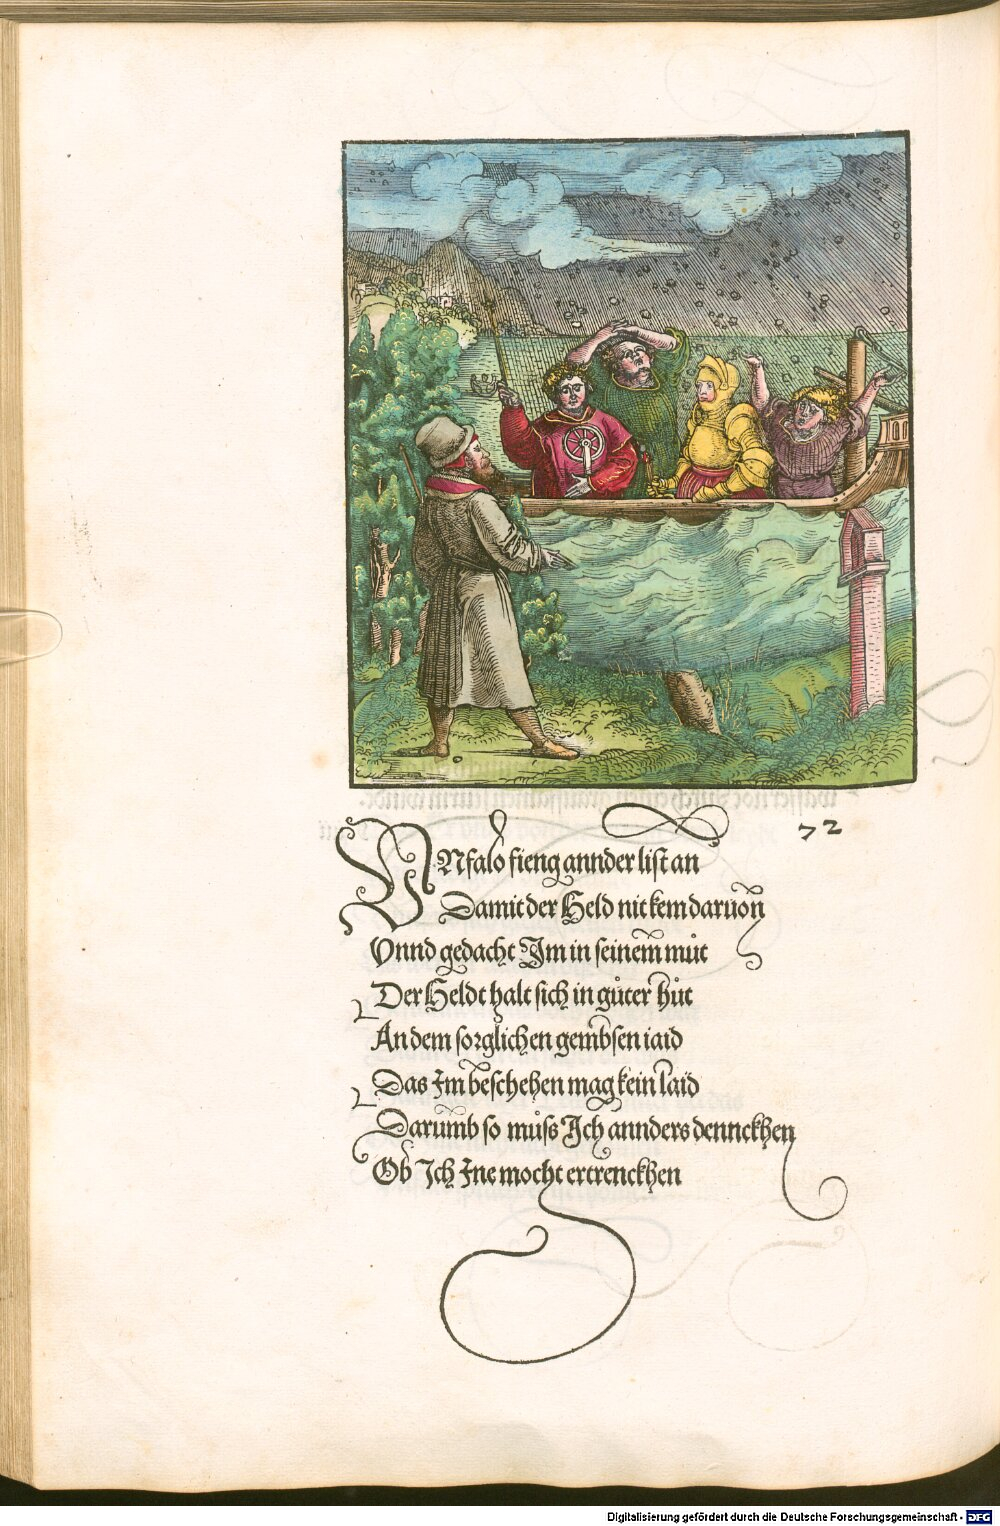 72
VNfalo fieng annder list an
Damit der Held nit kem daruon
Vnnd gedacht Im in seinem můt
Der Heldt halt sich in gůter hůt
An dem sorglichen gembsen iaid
Das Im beschehen mag kein laid
Darumb so můss Ich annders dennckhen
Ob Ich Ine mocht ertrenckhen
Digitalisierung gefördert durch die Deutsche Forschungsgemeinschaft - DFG